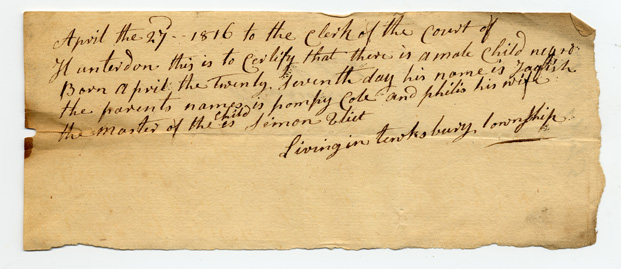 April the 27 - 1816 to the Clerk of the Court of
Hunterdon this is to Certify that there is a male Child negro
Born april the twenty seventh day his name is
the parents names is pompy Cole and philis his wife
the master of the Child is Simon Vliet
Living in tewksbury township